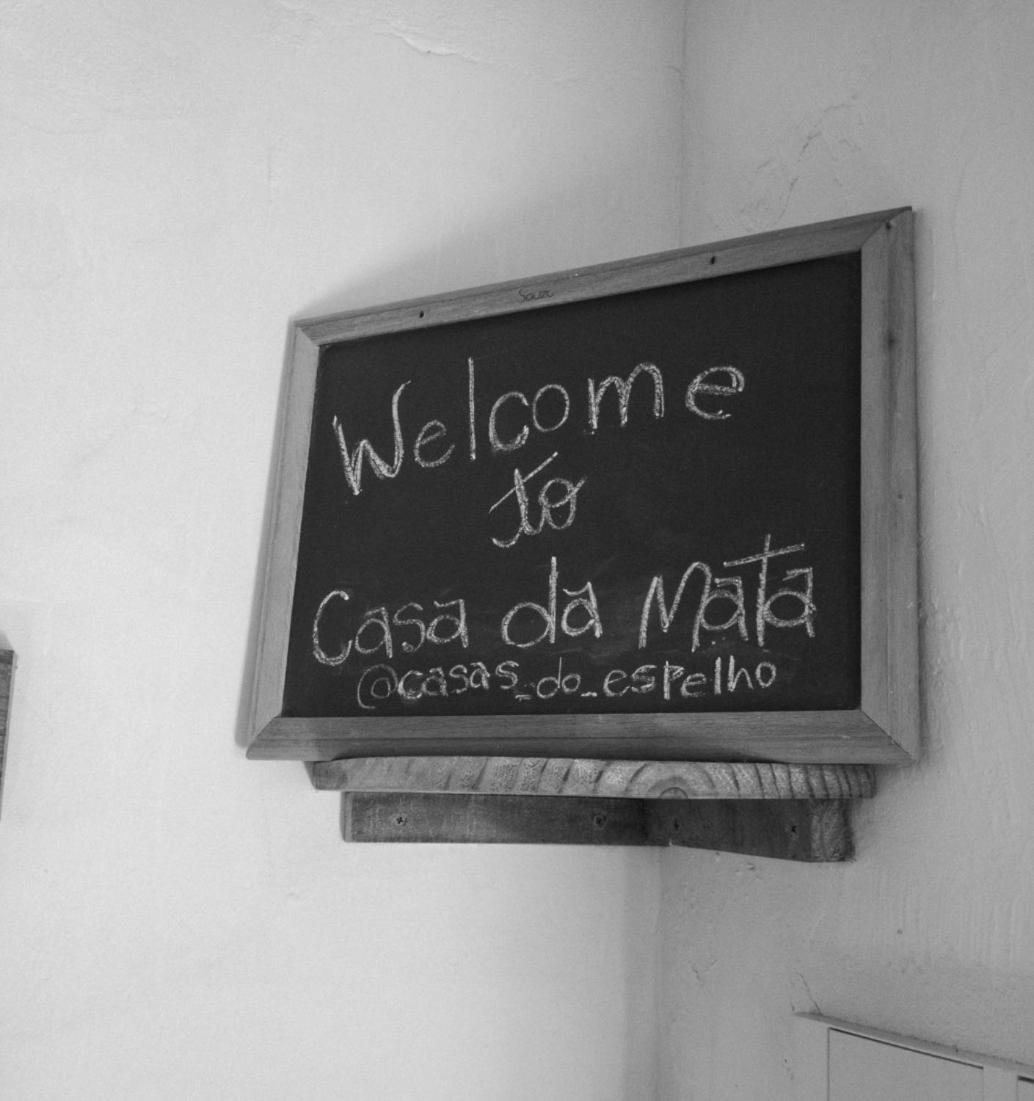 Welcome
to
Casa da Mata
@casas_do_espelho